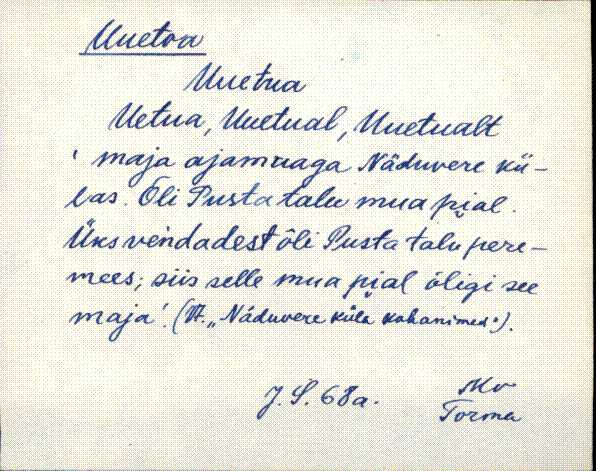 Uuetoa
Uuetua
Uetua, Uuetual, Uuetualt
' maja ajamuaga Näduvere kü-
las. Õli Pusta talu mua pial.
Üks vendadest õli Pusta talu pere-
mees; siis selle mua pial õligi see
maja'. (Vt. „Näduvere küla kohanimed").
J. S. 68a.
Torma